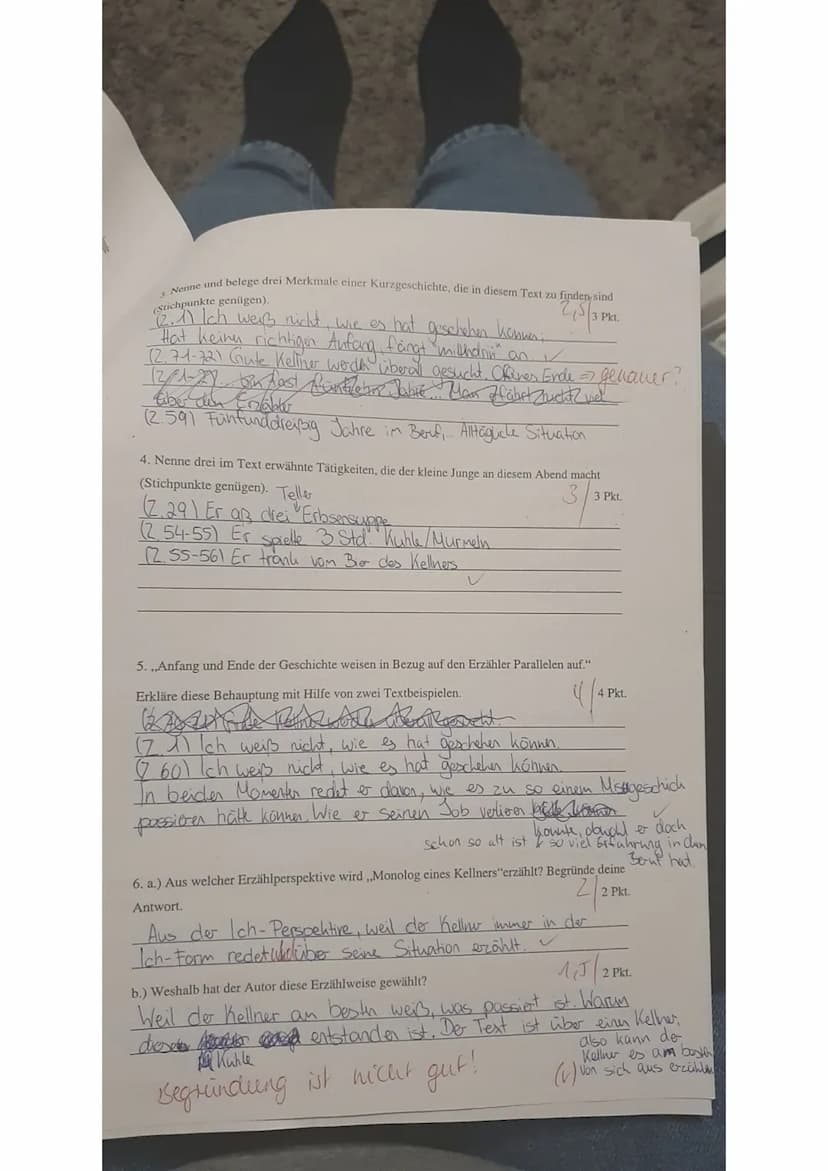 3. Nenne und belege drei Merkmale einer Kurzgeschichte, die in diesem Text zu finden sind
(Stichpunkte genügen).
2,5/3 Pkt.
(Z. 1) Ich weiß nicht, wie es hat geschehen können.
Hat keinen richtigen Anfang, fängt "mittendrin" an ✓
(Z. 71-72) Gute Kellner werden überall gesucht. Offenes Ende => genauer?
über den Erzähler
(Z. 59) Fünfunddreißig Jahre im Beruf,.. Alltägliche Situation
4. Nenne drei im Text erwähnte Tätigkeiten, die der kleine Junge an diesem Abend macht
(Stichpunkte genügen).
3/3 Pkt.
(Z. 29) Er aß drei Teller Erbsensuppe
(Z. 54-55) Er spielte 3 Std. Kuhle/Murmeln
(Z. 55-56) Er trank vom Bier des Kellners
✓
5. „Anfang und Ende der Geschichte weisen in Bezug auf den Erzähler Parallelen auf.“
Erkläre diese Behauptung mit Hilfe von zwei Textbeispielen.
4/4 Pkt.
(Z. 1) Ich weiß nicht, wie es hat geschehen können.
(Z 60) Ich weiß nicht, wie es hat geschehen können.
In beiden Momenten redet er davon, wie es zu so einem Missgeschick
passieren hätte können. Wie er seinen Job verlieren ✓
konnte, obwohl er doch
schon so alt ist & so viel Erfahrung in dem
Beruf hat.
6. a.) Aus welcher Erzählperspektive wird „Monolog eines Kellners“erzählt? Begründe deine
Antwort.
2/2 Pkt.
Aus der Ich-Perspektive, weil der Kellner immer in der
Ich-Form redet und über seine Situation erzählt. ✓
b.) Weshalb hat der Autor diese Erzählweise gewählt?
1,5/2 Pkt.
Weil der Kellner am besten weiß, was passiert ist. Warum
diese Kuhle entstanden ist. Der Text ist über einen Kellner,
also kann der
Kellner es am besten
(✓) von sich aus erzählen
Begründung ist nicht gut!